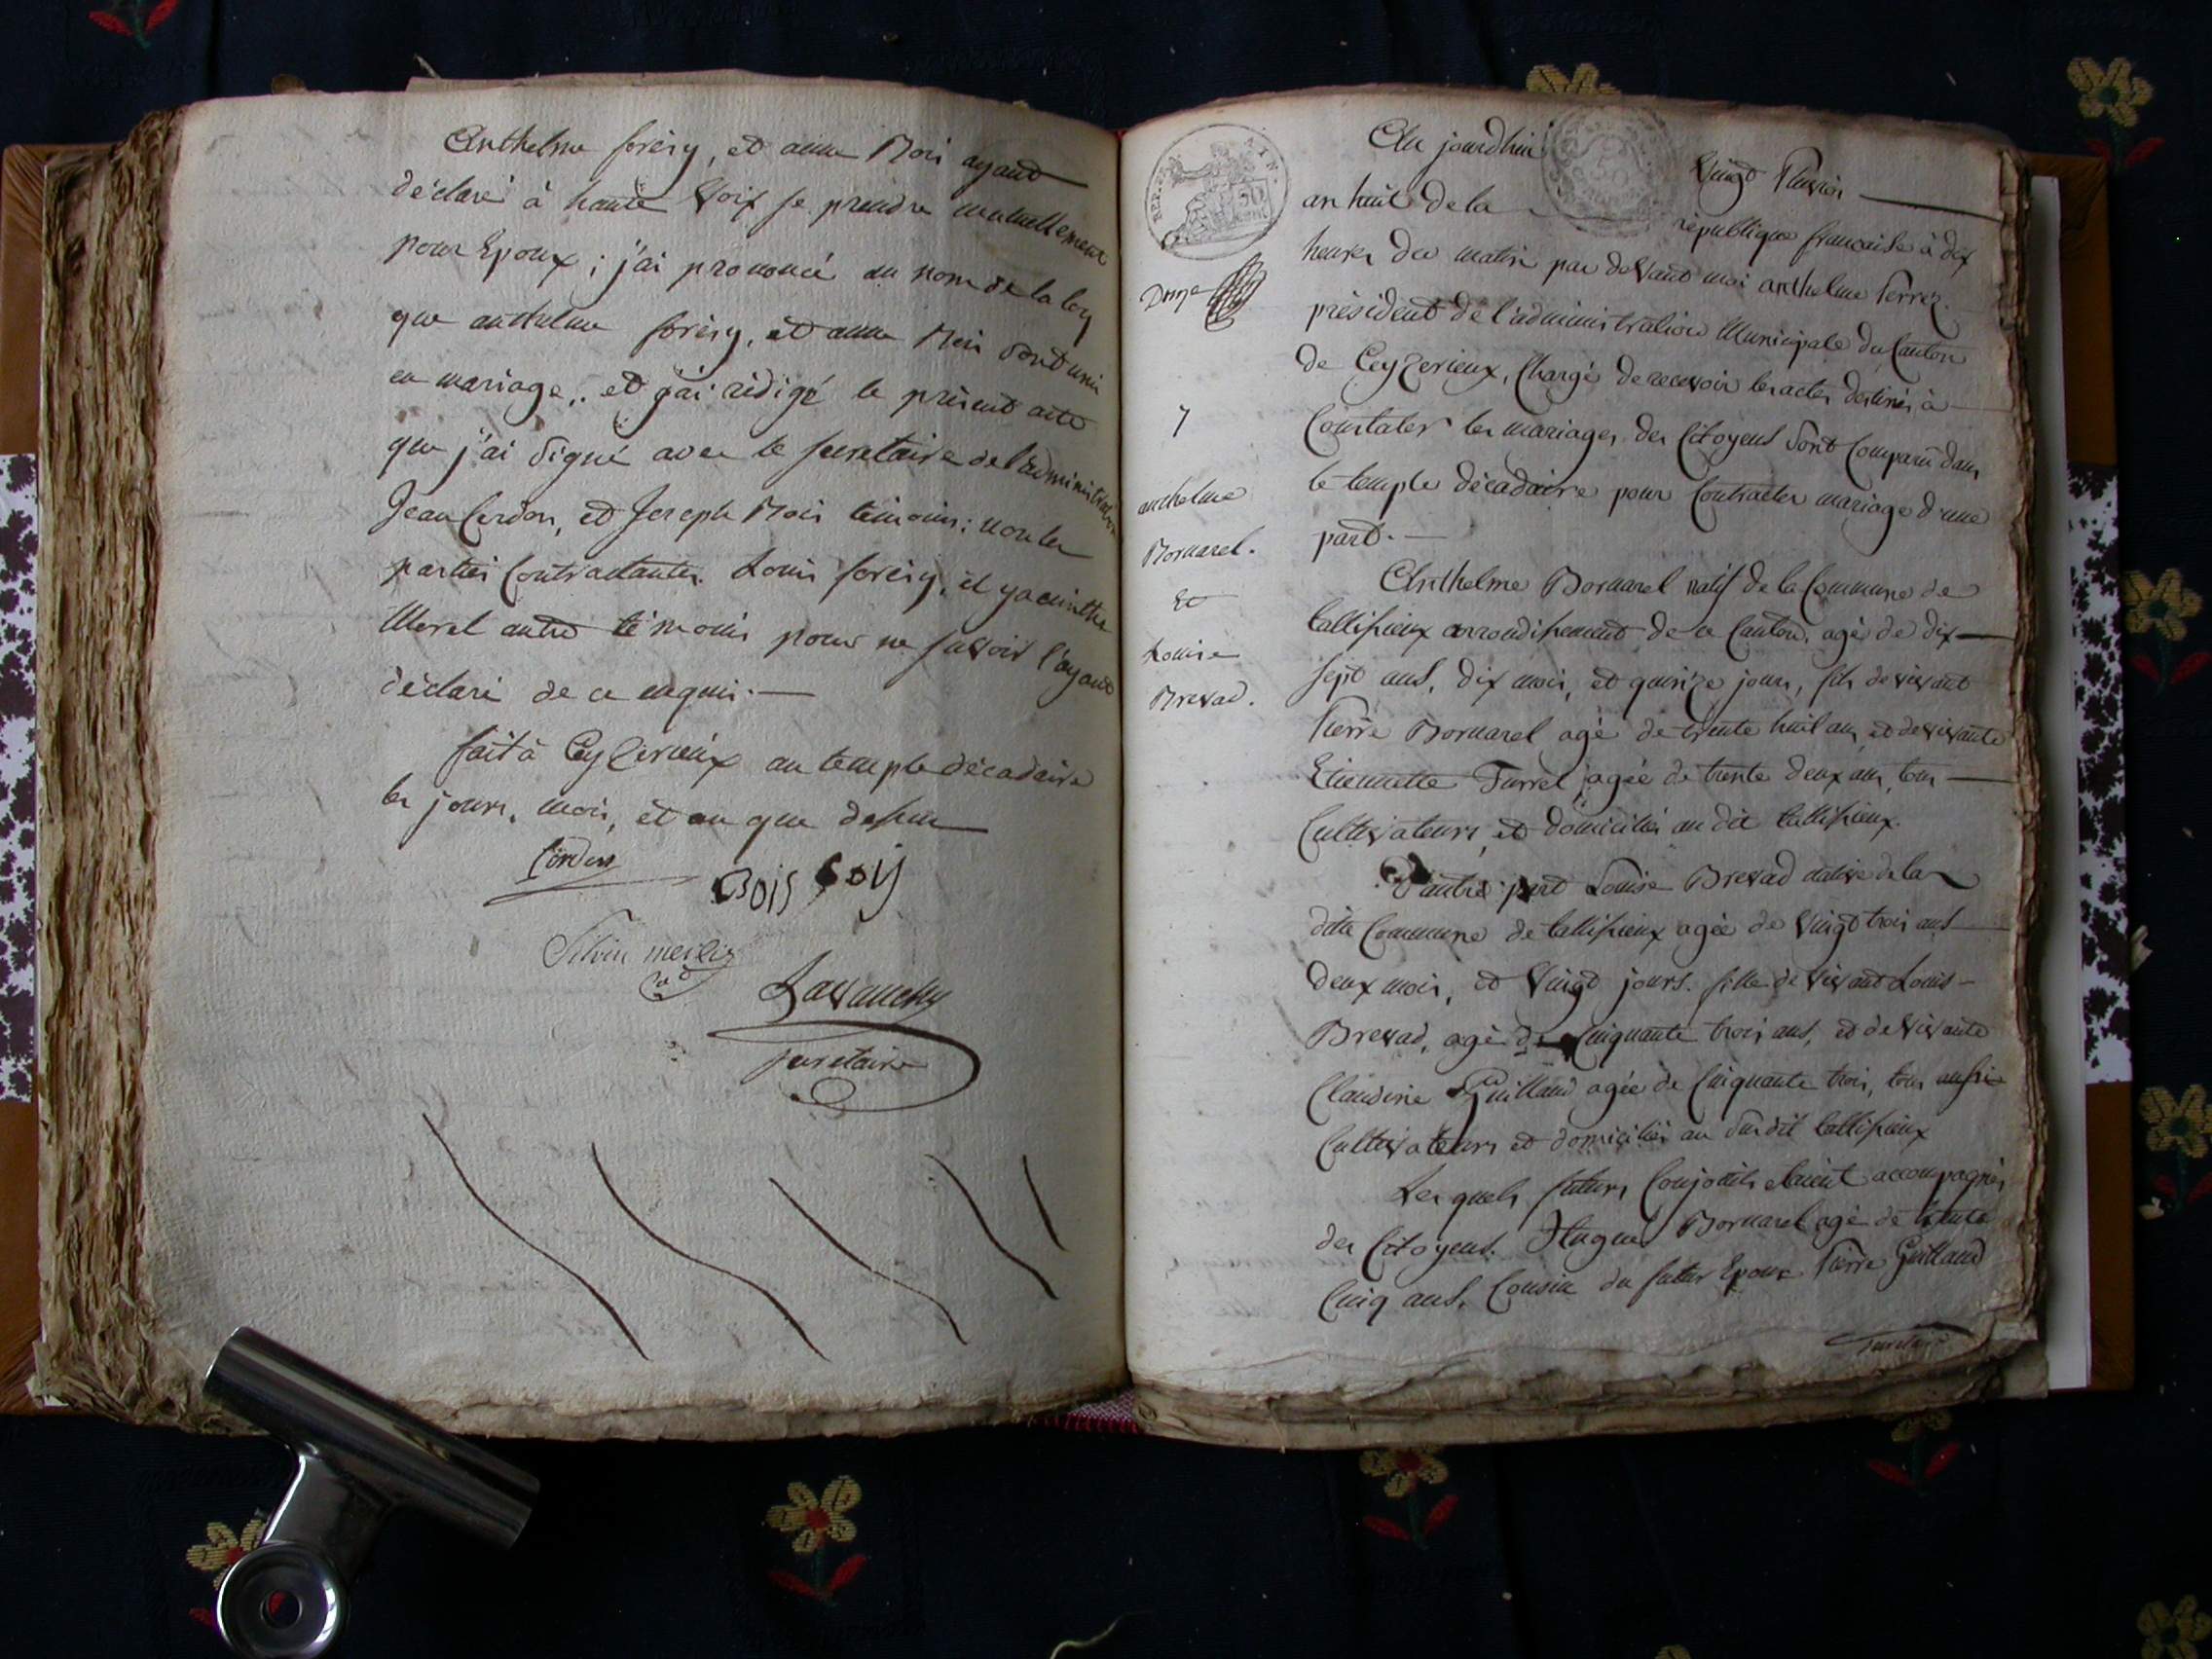 Anthelme forésy, et anne Bois ayant
déclaré à haute Voix se prendre mutuellement
pour Epoux ; j'ai prononcé au nom de la loy
que anthelme forésy, et anne Bois Sont unis
en mariage, et j'ai rédigé le présent acte
que j'ai Signé avec le secretaire de l'administration
Jean Cerdon, et Joseph Bois témoins : non les
parties Contractantes. Louis forésy, et yacinthe
Morel autre témoins pour ne savoir l'ayant
déclaré de ce enquis. —
fait à Ceyzerieux au temple décadaire
les jours, mois, et an que dessus
Cerdon
Bois
Lavanchy
secretaire
Au jourdhui Vingt Pluvios
REP. FRA. FIN.
50
an huit de la republique francaise à dix
heures du matin par devant moi anthelme Perrez
président de l'administration Municipale du Canton
de Ceyzerieux, Chargé de recevoir les actes destinés à
Constater les mariages des Citoyens Sont Comparu dans
le temple décadaire pour Contracter mariage d'une
part. —
7
anthelme
Bornarel.
Et
Louise
Brevad.
Anthelme Bornarel natif de la Commune de
tallissieux arrondissement de ce Canton, agé de dix
sept ans, dix mois, et quinze jours, fils de vivant
Pierre Bornarel agé de trente huit ans, et de vivante
Etiennette Turrel, agée de trente deux ans, tous
Cultivateurs, et domiciliés au dit tallissieux.
D'autre part Louise Brevad native de la
dite Commune de tallissieux agée de Vingt trois ans
deux mois, et Vingt jours. fille de Vivant Louis
Brevad, agé de Cinquante trois ans, et de Vivante
Claudine Guilland agée de Cinquante trois, tous aussi
Cultivateurs et domiciliés au Sus dit tallissieux
Les quels futurs Conjoints étaient accompagnés
des Citoyens. Hugues Bornarel agé de trente
Cinq ans, Cousin du futur Epoux Pierre Guilland